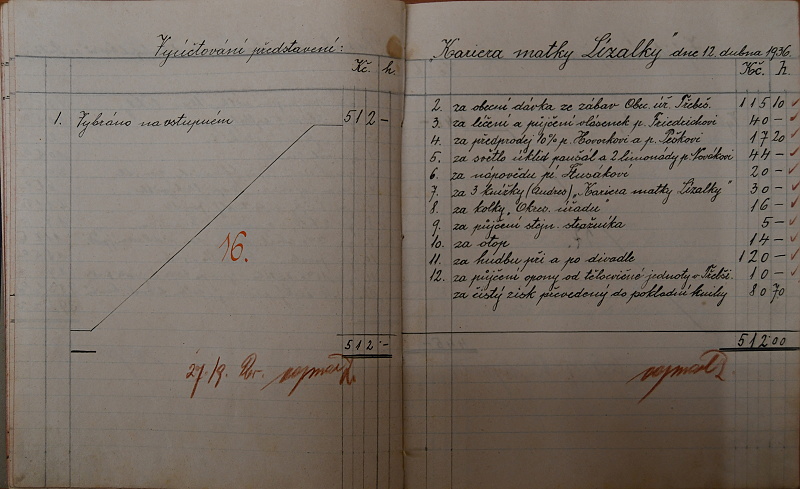 Vyúčtování představení:
Kč. h.
1. Vybráno na vstupném 512 –
16.
512 –
27./9.
"Kariera matky Lízalky" dne 12. dubna 1936.
Kč. h.
2. za obecní dávka ze zábav Obec. úř. Třebš. 115 10
3. za líčení a půjčení vlásenek p. Friedrichovi 40 –
4. za předprodej 10% p. Hovorkovi a p. Peškovi 17 20
5. za světlo úklid paušál a 2 limonády p. Novákovi 44 –
6. za nápovědu pí. Husákové 20 –
7. za 3 knížky (Andres) "Kariera matky Lízalky" 30 –
8. za kolky "Okres. úřadu" 16 –
9. za půjčení stejn. strážníka 5 –
10. za otop 14 –
11. za hudbu při a po divadle 120 –
12. za půjčení opony od tělocvičné jednoty v Třebši. 10 –
za čistý zisk převedený do pokladní knihy 80 70
512 00